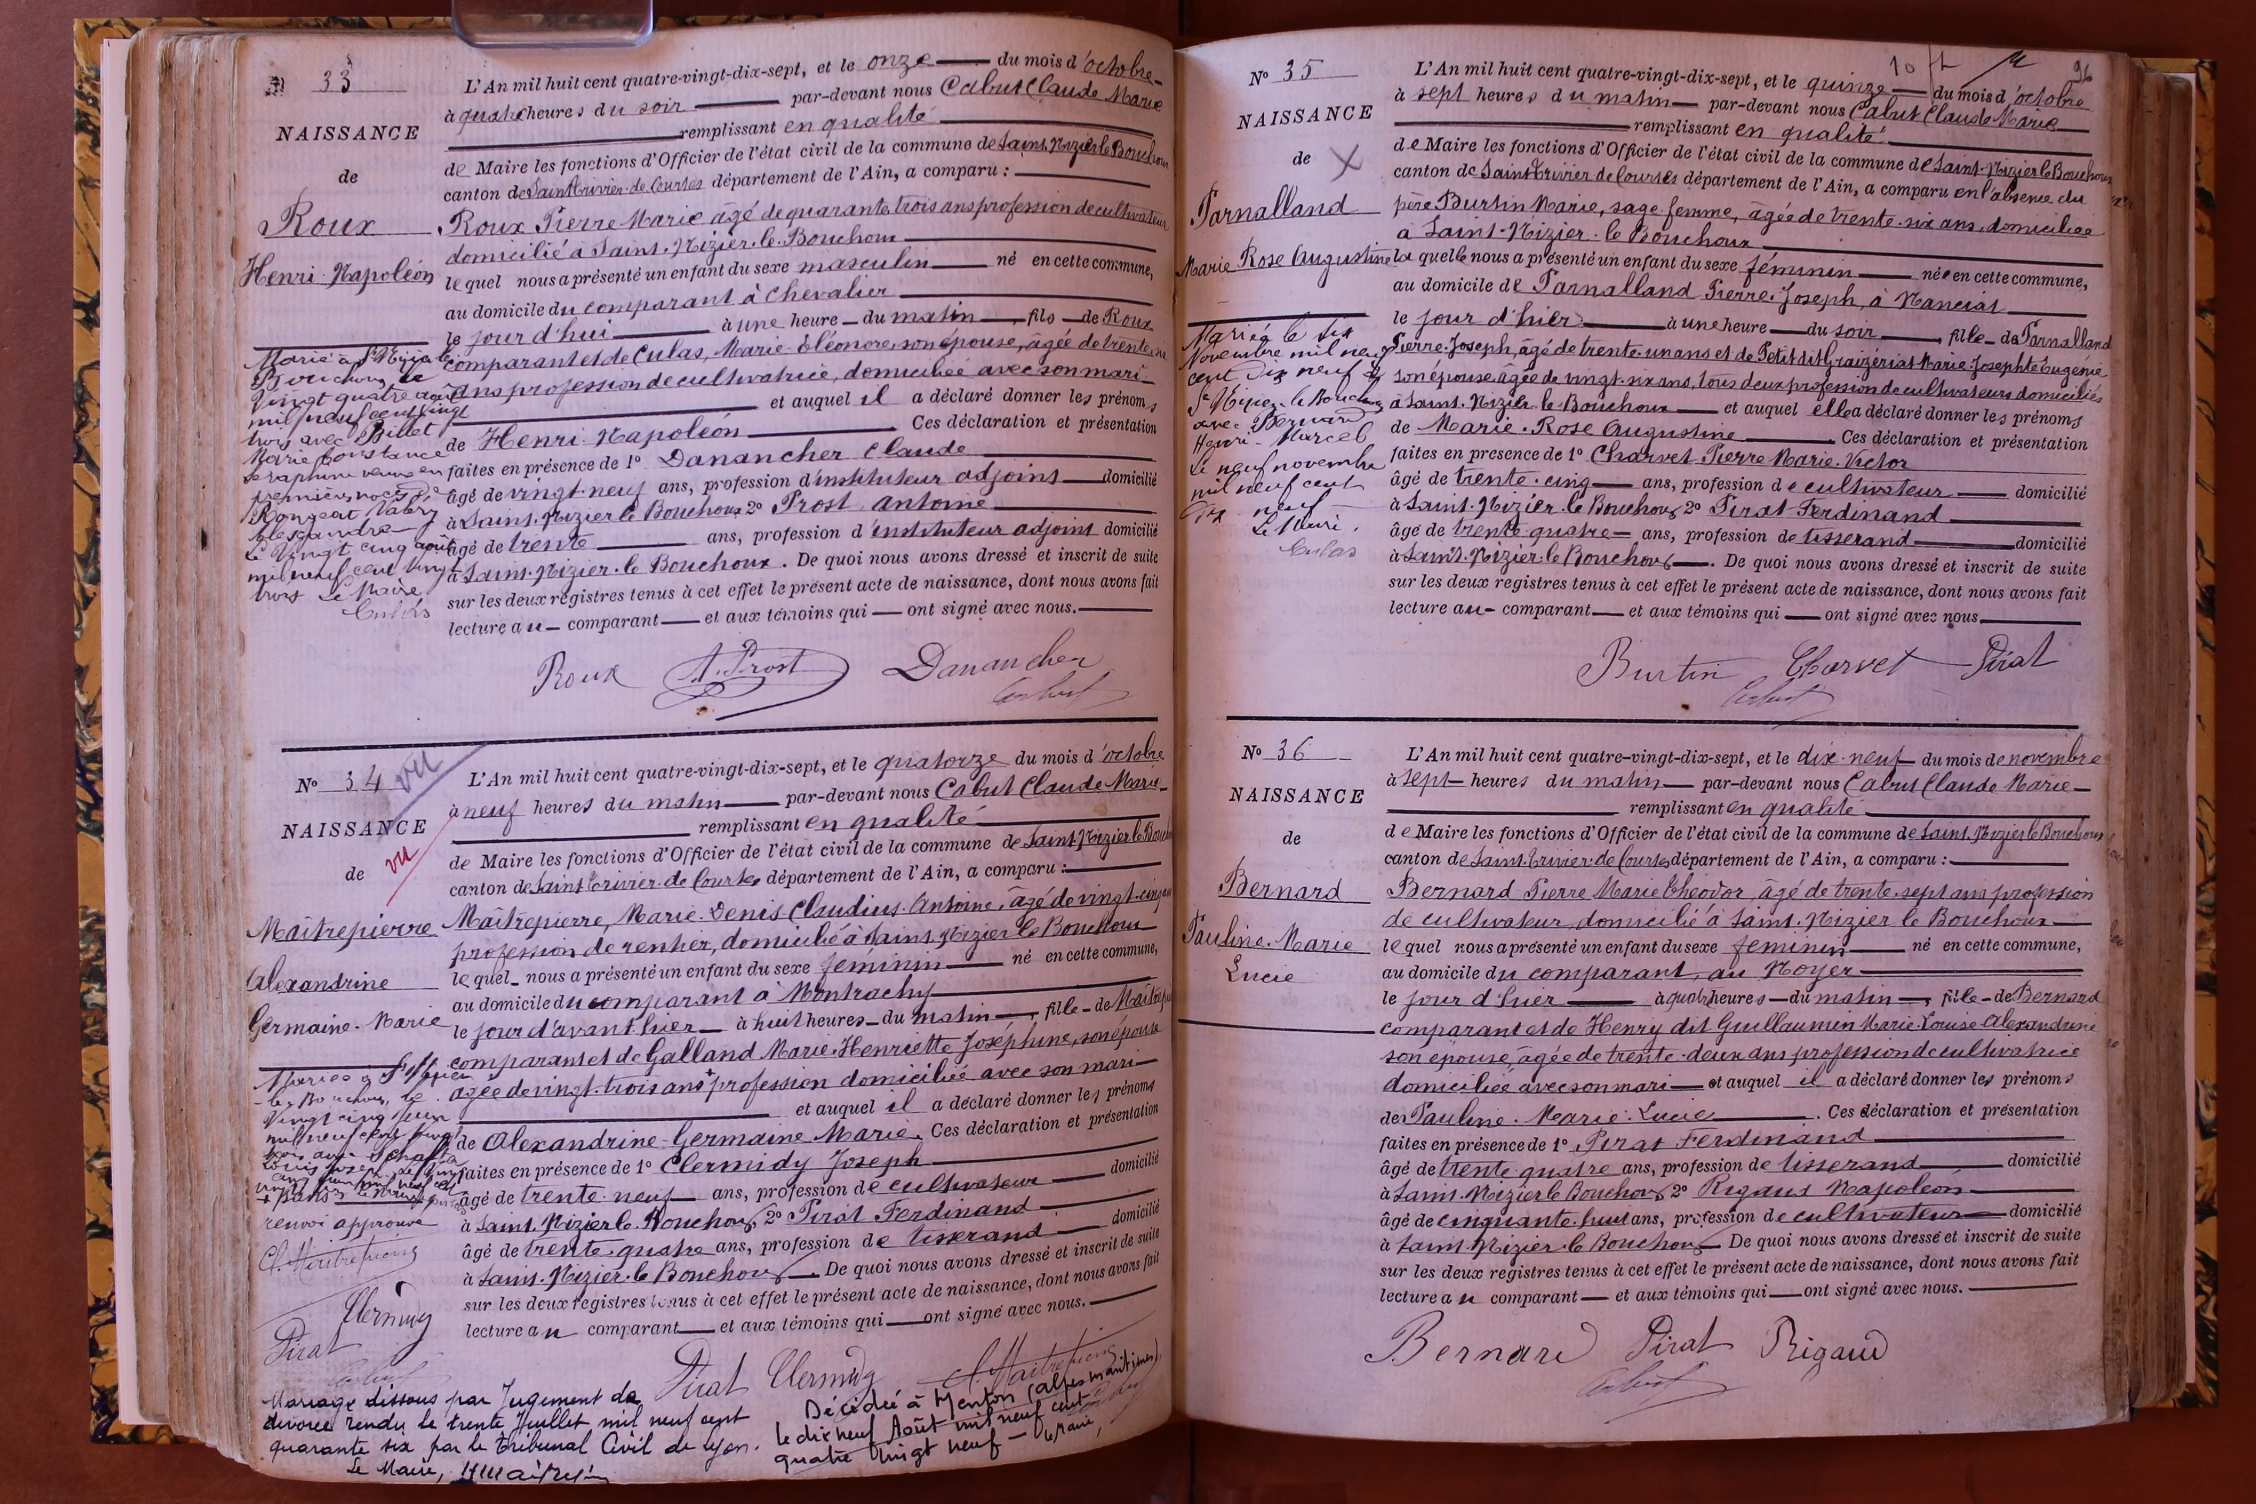 N° 33
NAISSANCE
de
Roux
Henri-Napoléon
L'An mil huit cent quatre-vingt-dix-sept, et le onze du mois d'octobre
à quatre heures du soir par-devant nous Cabut Claude Marie
remplissant en qualité
de Maire les fonctions d'Officier de l'état civil de la commune de Saint-Nizier le Bouchoux
canton de Saint Trivier-de-Courtes département de l'Ain, a comparu :
Roux Pierre Marie âgé de quarante trois ans profession de cultivateur
domicilié à Saint-Nizier-le-Bouchoux
lequel nous a présenté un enfant du sexe masculin né en cette commune,
au domicile du comparant à Chevalier
le jour d'hui à une heure du matin, fils de Roux
comparant et de Culas, Marie Eléonore son épouse, âgée de trente
ans profession de cultivatrice, domiciliée avec son mari
et auquel il a déclaré donner les prénoms
de Henri-Napoléon Ces déclaration et présentation
faites en présence de 1° Danancher Claude
âgé de vingt-neuf ans, profession d'instituteur adjoint domicilié
à Saint-Nizier le Bouchoux 2° Prost Antoine
âgé de trente ans, profession d'instituteur adjoint domicilié
à Saint-Nizier-le Bouchoux. De quoi nous avons dressé et inscrit de suite
sur les deux registres tenus à cet effet le présent acte de naissance, dont nous avons fait
lecture au comparant et aux témoins qui ont signé avec nous.
Marié à St Nizier le
Bouchoux le
vingt quatre août
mil neuf cent vingt
trois avec Billet
Marie Constance
Séraphine veuve en
premières noces de
Rongeat Valéry
Alexandre
Le vingt cinq août
mil neuf cent vingt
trois Le Maire
Culas
Roux A. Prost Danancher
Cabut
N° 34
vu
NAISSANCE
vu
de
Maîtrepierre
Alexandrine
Germaine-Marie
L'An mil huit cent quatre-vingt-dix-sept, et le quatorze du mois d'octobre
à neuf heures du matin par-devant nous Cabut Claude Marie
remplissant en qualité
de Maire les fonctions d'Officier de l'état civil de la commune de Saint-Nizier le Bouchoux
canton de Saint Trivier-de-Courtes département de l'Ain, a comparu :
Maîtrepierre, Marie-Denis Claudius-Antoine, âgé de vingt-cinq ans
profession de rentier, domicilié à Saint-Nizier le Bouchoux
lequel nous a présenté un enfant du sexe féminin né en cette commune,
au domicile du comparant à Montrachy
le jour d'avant hier à huit heures du matin, fille de Maîtrepierre
comparant et de Galland Marie-Henriette Joséphine, son épouse
âgée de vingt-trois ans + profession domiciliée avec son mari
et auquel il a déclaré donner les prénoms
de Alexandrine-Germaine Marie. Ces déclaration et présentation
faites en présence de 1° Clermidy Joseph
âgé de trente-neuf ans, profession de cultivateur domicilié
à Saint-Nizier le Bouchoux, 2° Pirat Ferdinand
âgé de trente-quatre ans, profession de tisserand domicilié
à Saint-Nizier-le Bouchoux. De quoi nous avons dressé et inscrit de suite
sur les deux registres tenus à cet effet le présent acte de naissance, dont nous avons fait
lecture au comparant et aux témoins qui ont signé avec nous.
Mariée à St Nizier
le Bouchoux, le
vingt cinq
mil neuf cent vingt
avec
Louis Joseph
+ sans
renvoi approuvé
Cl. Maitrepierre
Clermidy
Pirat
Cabut
Pirat Clermidy Cl. Maitrepierre
Cabut
Mariage dissous par Jugement de
divorce rendu le trente Juillet mil neuf cent
quarante six par le tribunal Civil de Lyon.
Le Maire,
Décédée à Menton (Alpes maritimes)
le dix neuf Août mil neuf cent
quatre vingt neuf - Le Maire,
10
96
N° 35
NAISSANCE
de
Parnalland
Marie Rose Augustine
L'An mil huit cent quatre-vingt-dix-sept, et le quinze du mois d'octobre
à sept heures du matin par-devant nous Cabut Claude Marie
remplissant en qualité
de Maire les fonctions d'Officier de l'état civil de la commune de Saint-Nizier le Bouchoux
canton de Saint-Trivier de Courtes département de l'Ain, a comparu en l'absence du
père Burtin Marie, sage-femme, âgée de trente-six ans, domiciliée
à Saint-Nizier-le Bouchoux
laquelle nous a présenté un enfant du sexe féminin née en cette commune,
au domicile de Parnalland Pierre-Joseph, à Manciat
le jour d'hier à une heure du soir, fille de Parnalland
Pierre-Joseph, âgé de trente-un ans et de Petit dit Graizériat Marie-Josephte Eugénie
son épouse, âgée de vingt-six ans, tous deux profession de cultivateurs domiciliés
à Saint-Nizier-le-Bouchoux et auquel elle a déclaré donner les prénoms
de Marie-Rose Augustine. Ces déclaration et présentation
faites en présence de 1° Charvet Pierre Marie-Victor
âgé de trente-cinq ans, profession de cultivateur domicilié
à Saint-Nizier-le Bouchoux 2° Pirat Ferdinand
âgé de trente-quatre ans, profession de tisserand domicilié
à Saint-Nizier-le Bouchoux. De quoi nous avons dressé et inscrit de suite
sur les deux registres tenus à cet effet le présent acte de naissance, dont nous avons fait
lecture au comparant et aux témoins qui ont signé avec nous
Mariée le six
Novembre mil neuf
cent dix neuf à
St Nizier-le Bouchoux
avec Bernard
Henri-Marcel
Le neuf novembre
mil neuf cent
dix neuf
Le Maire.
Culas
Burtin Charvet Pirat
Cabut
N° 36
NAISSANCE
de
Bernard
Pauline-Marie
Lucie
L'An mil huit cent quatre-vingt-dix-sept, et le dix-neuf du mois de novembre
à sept heures du matin par-devant nous Cabut Claude Marie
remplissant en qualité
de Maire les fonctions d'Officier de l'état civil de la commune de Saint-Nizier le Bouchoux
canton de Saint-Trivier-de Courtes département de l'Ain, a comparu :
Bernard Pierre Marie Théodor, âgé de trente-sept ans profession
de cultivateur, domicilié à Saint-Nizier le Bouchoux
lequel nous a présenté un enfant du sexe féminin né en cette commune,
au domicile du comparant, au Noyer
le jour d'hier à quatre heures du matin, fille de Bernard
comparant et de Henry dit Guillaumin Marie-Louise Alexandrine
son épouse, âgée de trente-deux ans profession de cultivatrice
domiciliée avec son mari et auquel il a déclaré donner les prénoms
de Pauline-Marie-Lucie. Ces déclaration et présentation
faites en présence de 1° Pirat Ferdinand
âgé de trente-quatre ans, profession de tisserand domicilié
à Saint-Nizier le Bouchoux 2° Rigaud Napoléon
âgé de cinquante-huit ans, profession de cultivateur domicilié
à Saint-Nizier-le Bouchoux De quoi nous avons dressé et inscrit de suite
sur les deux registres tenus à cet effet le présent acte de naissance, dont nous avons fait
lecture au comparant et aux témoins qui ont signé avec nous.
Bernard Pirat Rigaud
Cabut